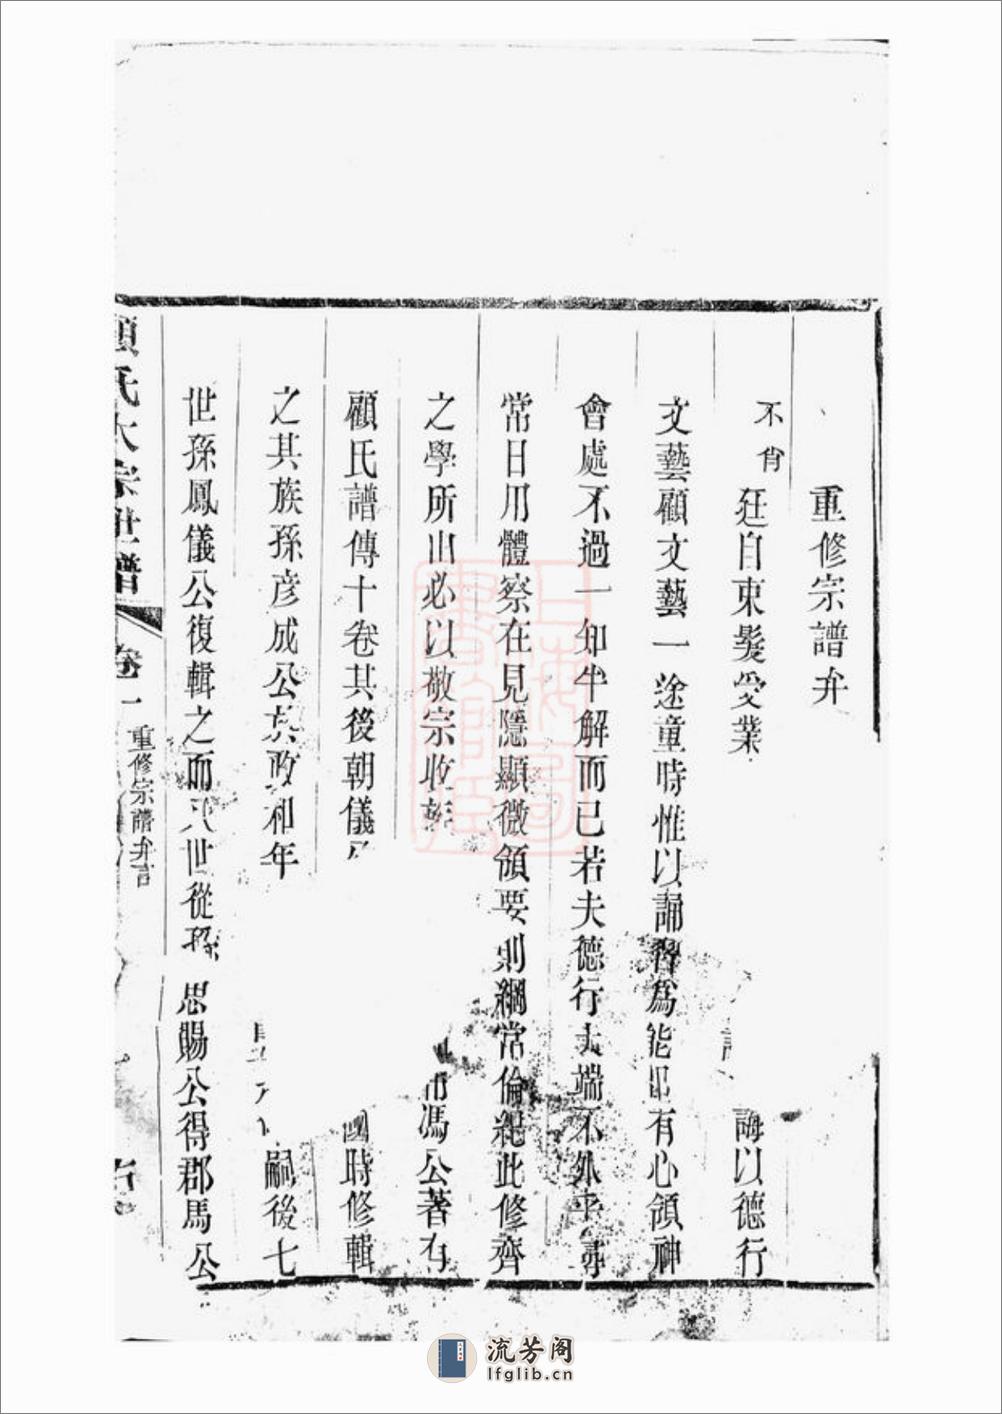 重修宗譜弁
不肖廷自束髮受業誨以德行
文藝顧文藝一途童時惟以誦習為能即有心領神
會處不過一知半解而已若夫德行大端不外平尋
常日用體察在見隱顯微領要則綱常倫紀此修齊
之學所由必以敬宗收馮公著有
顧氏譜傳十卷其後朝儀國時修輯
之其族孫彦成公於政和年嗣後七
世孫鳳儀公復輯之而八世從孫思賜公得郡馬公
顧氏大宗世譜
卷一
重修宗譜弁言
上海圖書館藏
流芳阁
lfglib.cn